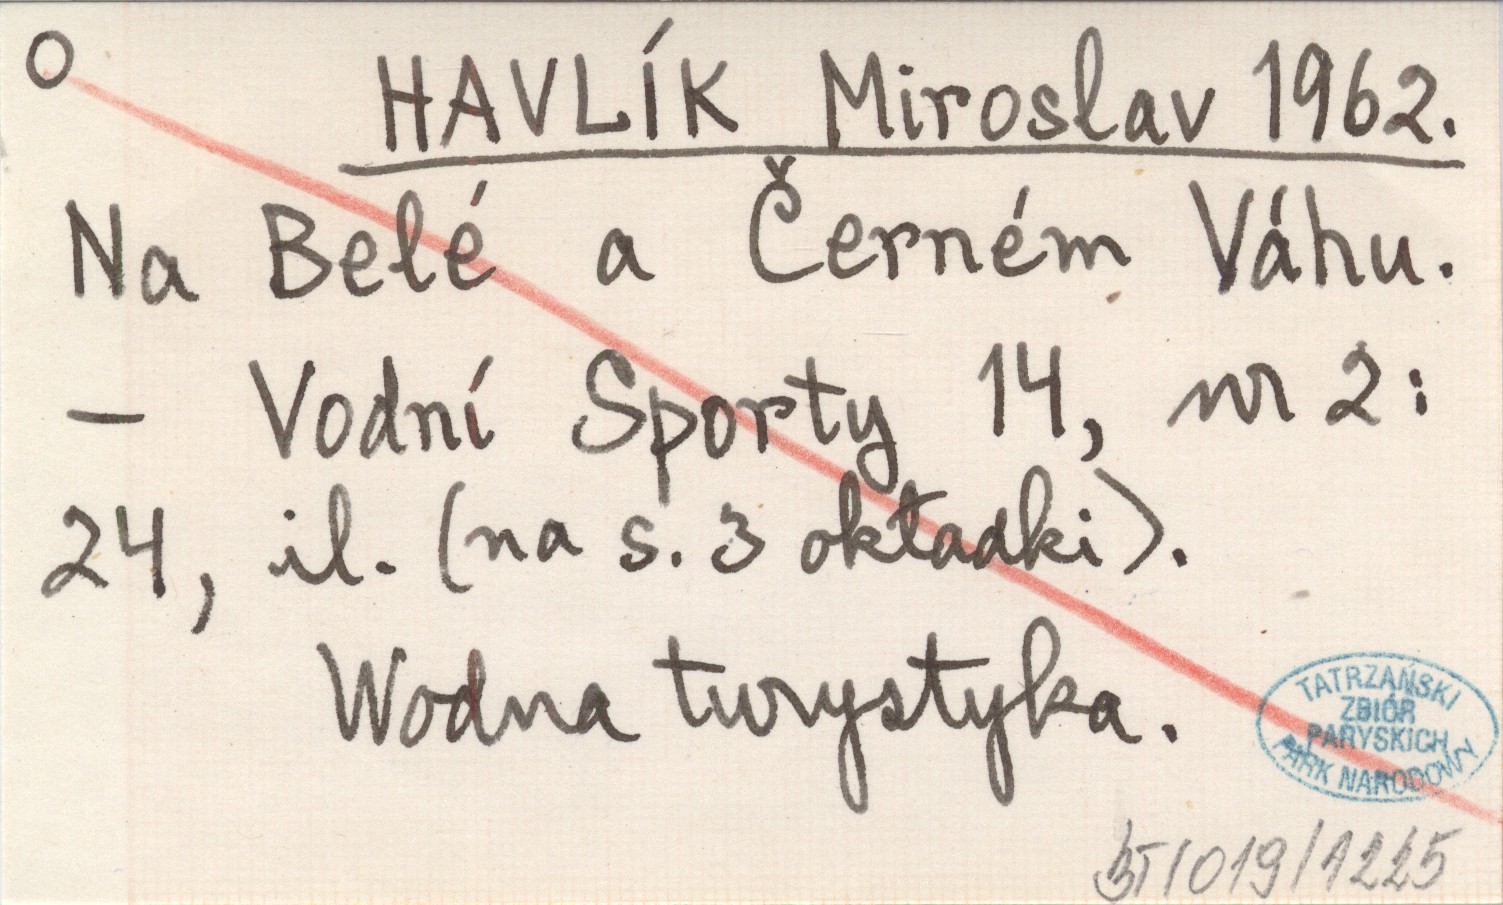 O
HAVLÍK Miroslav 1962.
Na Belé a Černém Váhu.
- Vodní Sporty 14, nr 2:
24, il. (na s. 3 okładki).
Wodna turystyka.
TATRZAŃSKI
ZBIÓR
PARYSKICH
PARK NARODOWY
/019/1225